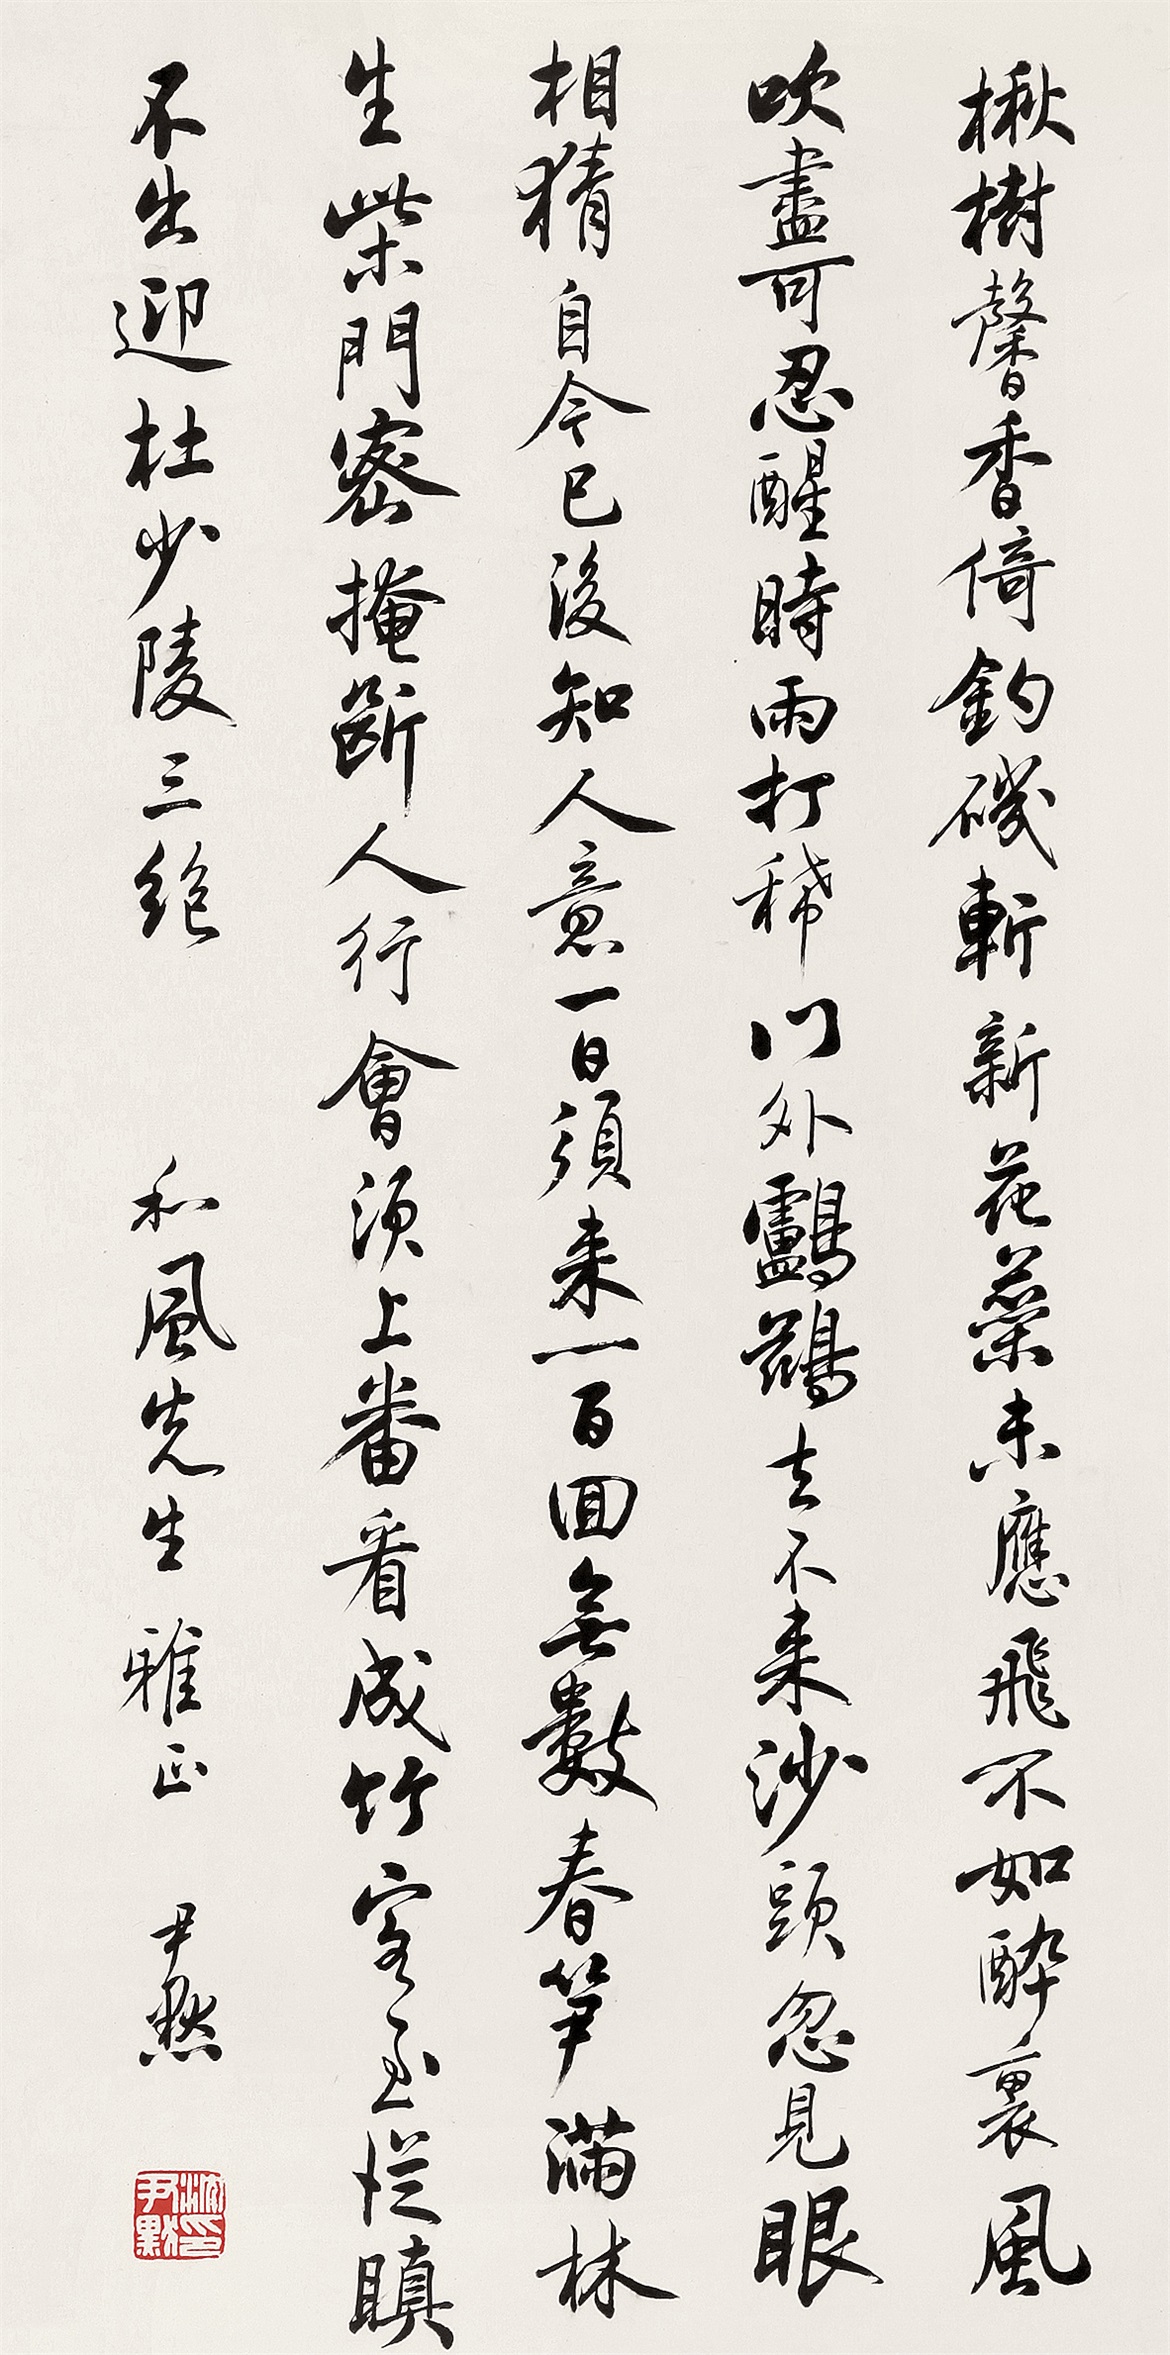 楸樹馨香倚釣磯斬新花蘂未應飛不如醉裏風
吹盡可忍醒時雨打稀門外鸕鷀去不来沙頭忽見眼
相猜自今已後知人意一日須来一百回無數春笋滿林
生柴門密掩斷人行會須上番看成竹客至從瞋
不出迎杜少陵三絶 和風先生雅正 尹默
沈尹默印